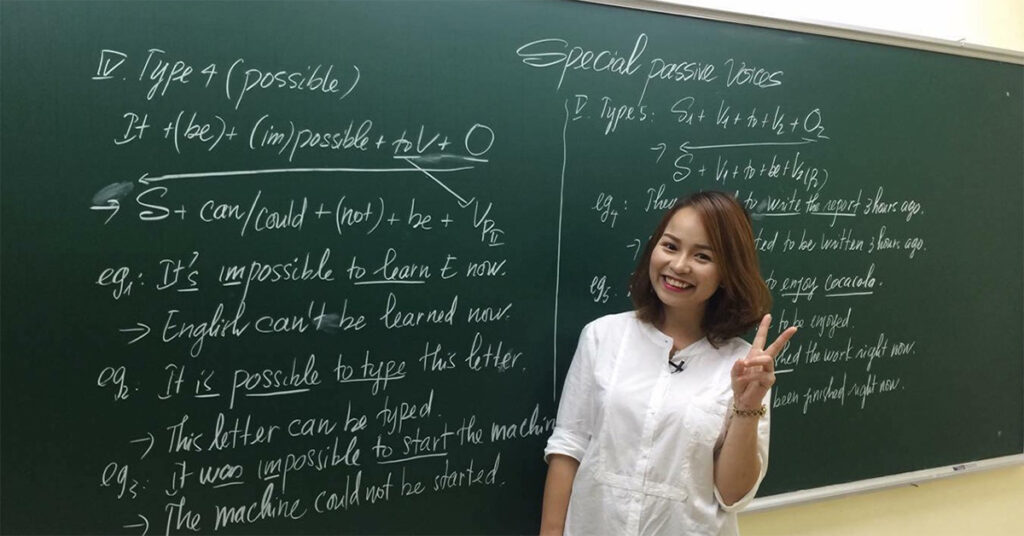 Special passive Voices
IV. Type 4 (possible)
It + (be) + (im)possible + to V + O
→ S + can/could + (not) + be + VpII
eg1: It's impossible to learn E now.
→ English can't be learned now.
eg2: It is possible to type this letter.
→ This letter can be typed.
eg3: It was impossible to start the machin
→ The machine could not be started.
V. Type 5: S1 + V1 + to + V2 + O2
→ S + V1 + to + be + V2(P2)
eg4: to write the report 3 hours ago.
→ ted to be written 3 hours ago.
eg5: to enjoy cocacola.
to be enjoyed.
hed the work right now.
been finished right now.